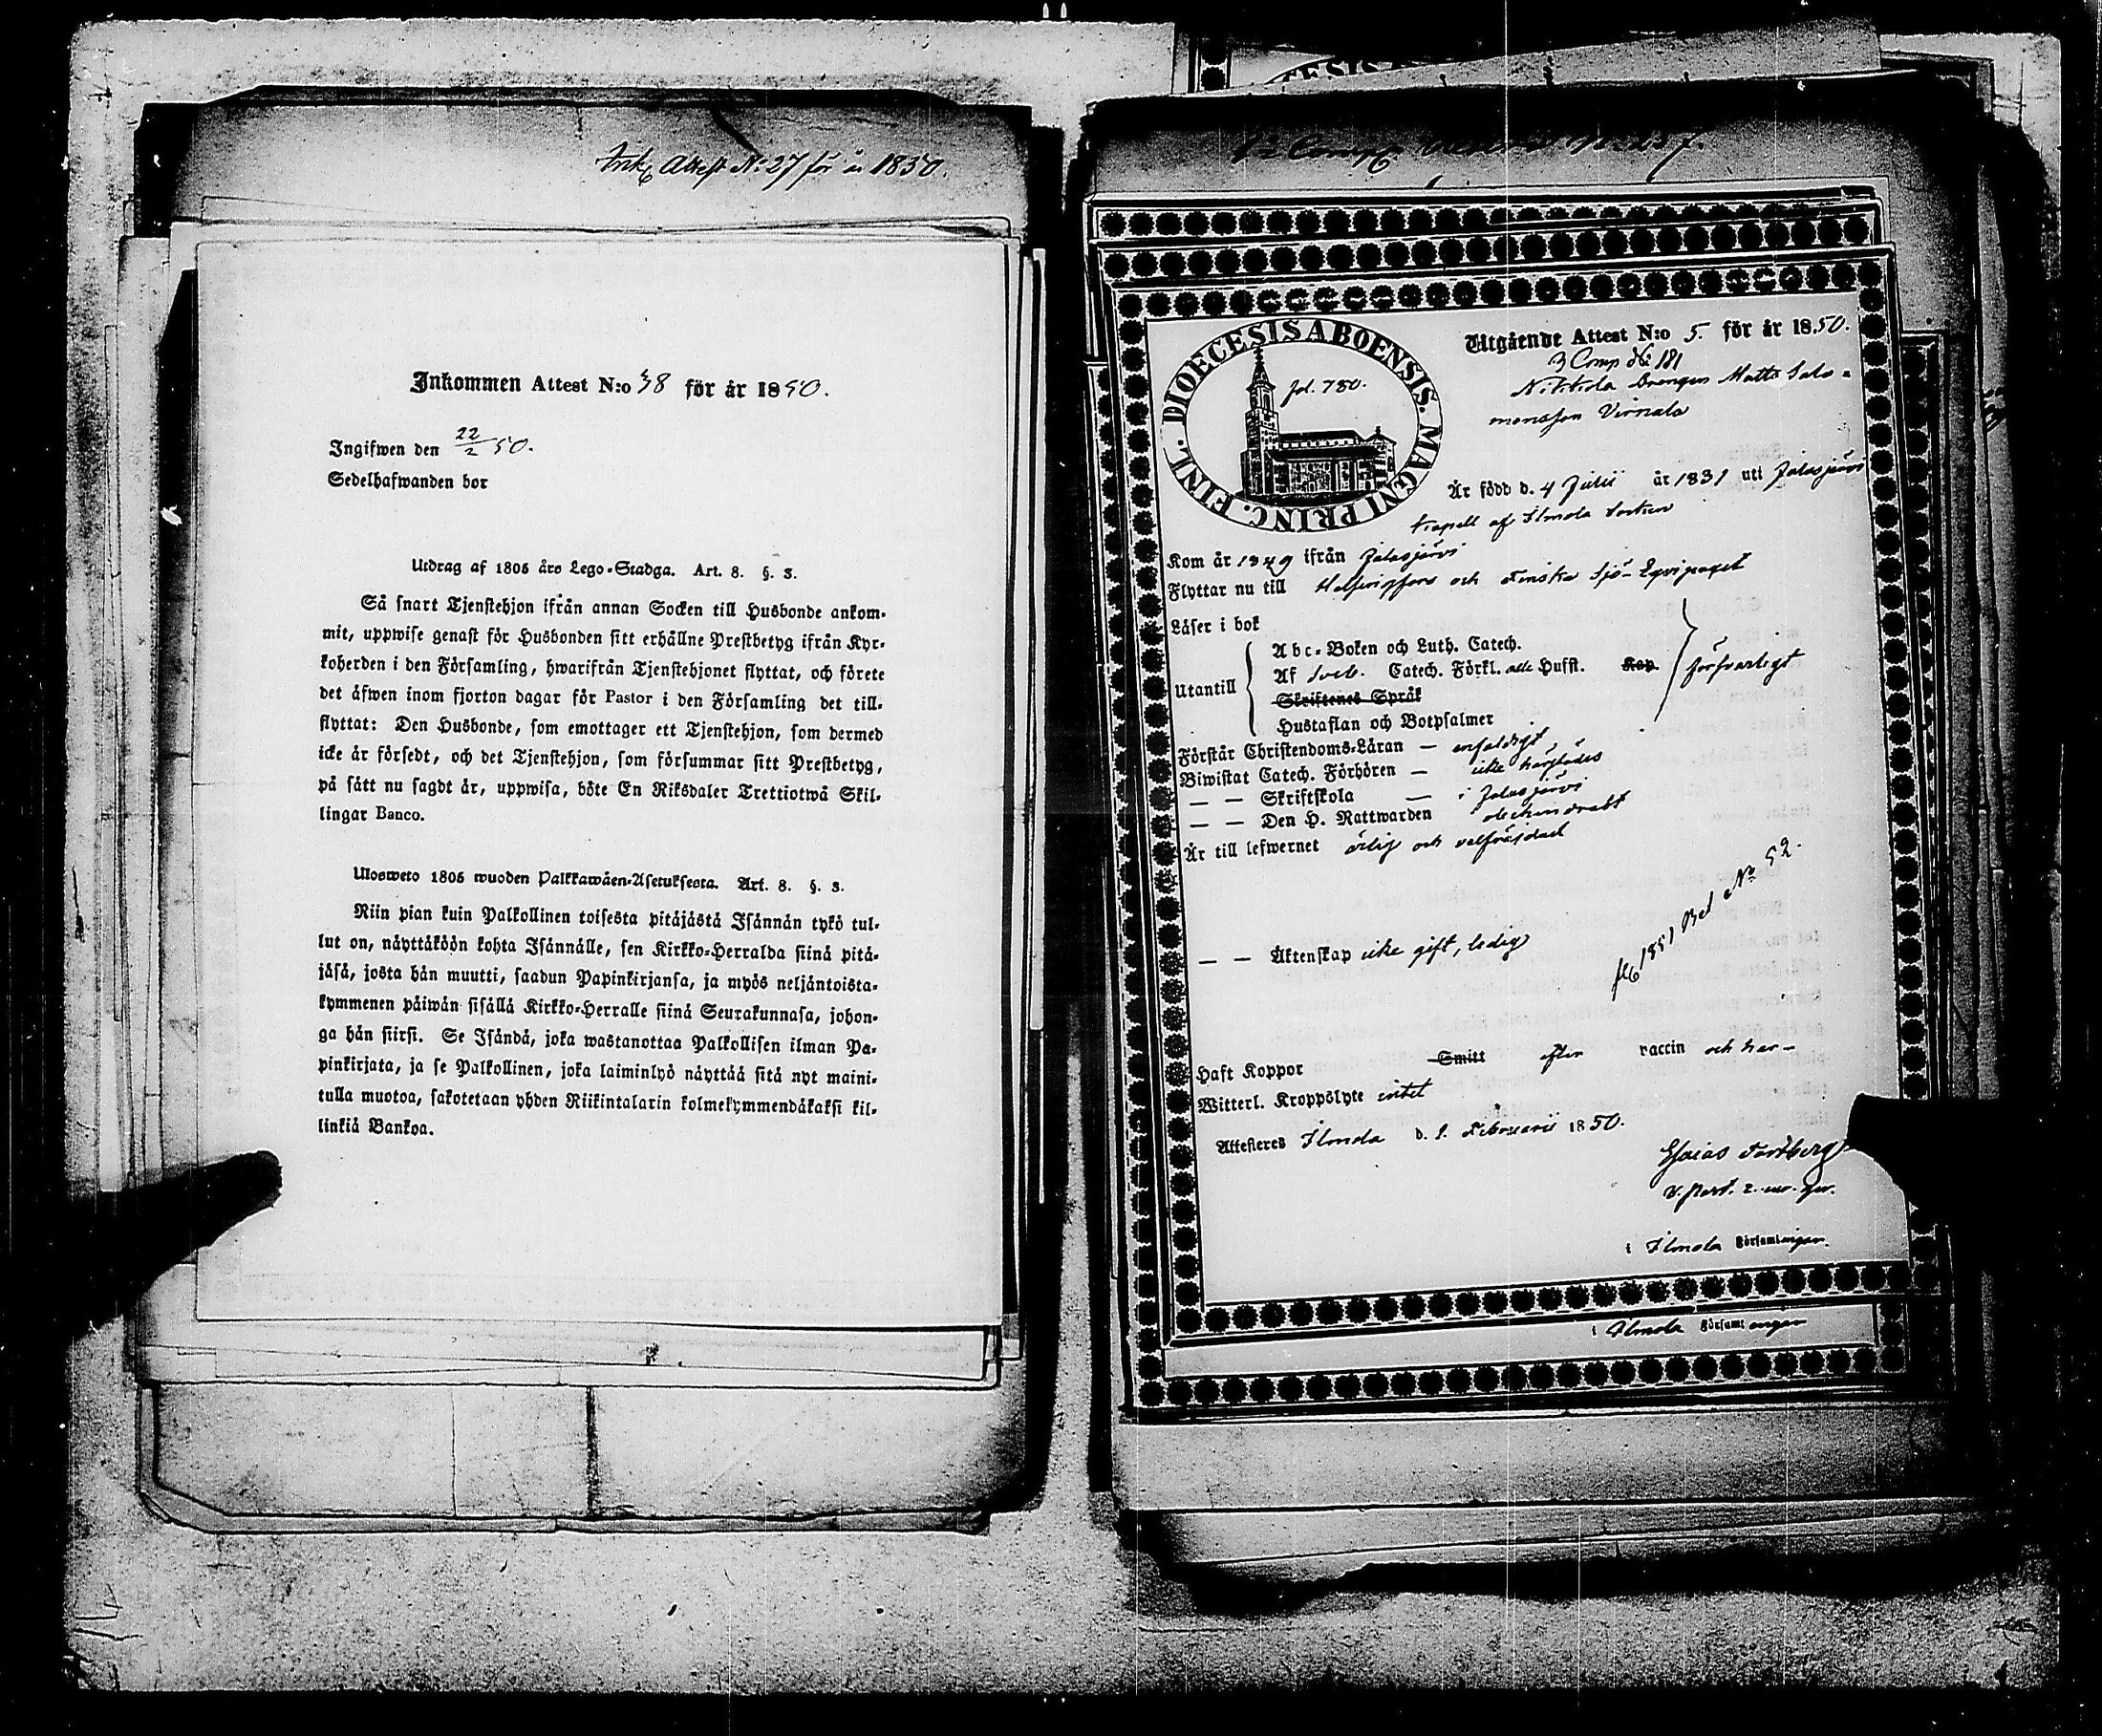 Ink. Attest N:27 för år 1850.
Inkommen Attest N:o 38 för år 1850.
Ingifwen den 22/2 50.
Sedelhafwanden bor
Utdrag af 1805 års Lego-Stadga. Art. 8. §. 3.
Så snart Tjenstehjon ifrån annan Socken till Husbonde ankom-
mit, uppwise genast för Husbonden sitt erhållne Prestbetyg ifrån Kyr-
koherden i den Församling, hwarifrån Tjenstehjonet flyttat, och förete
det äfwen inom fjorton dagar för Pastor i den Församling det till-
flyttat: Den Husbonde, som emottager ett Tjenstehjon, som dermed
icke är försedt, och det Tjenstehjon, som försummar sitt Prestbetyg,
på sätt nu sagdt är, uppwisa, böte En Riksdaler Trettiotwå Skil-
lingar Banco.
Ulosweto 1805 wuoden Palkkawäen-Asetuksesta. Art. 8. §. 3.
Niin pian kuin Palkollinen toisesta pitäjästä Isännän tykö tul-
lut on, näyttäköön kohta Isännälle, sen Kirkko-Herralda siinä pitä-
jäsä, josta hän muutti, saadun Papinkirjansa, ja myös neljäntoista-
kymmenen päiwän sisällä Kirkko-Herralle siinä Seurakunnasa, johon-
ga hän siirsi. Se Isändä, joka wastanottaa Palkollisen ilman Pa-
pinkirjata, ja se Palkollinen, joka laiminlyö näyttää sitä nyt maini-
tulla muotoa, sakotetaan yhden Riikintalarin kolmekymmendäkaksi kil-
linkiä Bankoa.
DIOECESIS ABOENSIS. MAGNI PRINC. FINL.
fol. 780.
Utgående Attest N:o 5. för år 1850.
3 Comp N: 181
Drengen Matts Salo-
monsson Virnala
Är född d. 4 Julii år 1831 uti Jalasjärvi
kapell af Ilmola Socken
Kom år 1849 ifrån Jalasjärvi
Flyttar nu till Helsingfors och Finska Sjö-Eqvipaget
Läser i bok
Utantill
Abc-Boken och Luth. Catech.
Af Sveb. Catech. Förkl. alle Hufst. Kap.
Skriftenes Språk
Hustaflan och Botpsalmer
försvarligt
Förstår Christendoms-Läran — enfaldigt
Biwistat Catech. Förhören — icke härstädes
— — Skriftskola — i Jalasjärvi
— — Den H. Nattwarden oklandradt
Är till lefwernet ärlig och välfräjdad
— — Äktenskap icke gift, ledig
1851 Bet N:o 52.
Haft Koppor Smitt efter vaccin och har—
Witterl. Kroppslyte intet
Attesteres Ilmola d. 9. Februarii 1850.
Esaias
i Ilmola Församlingen.
i Ilmola Församlingen